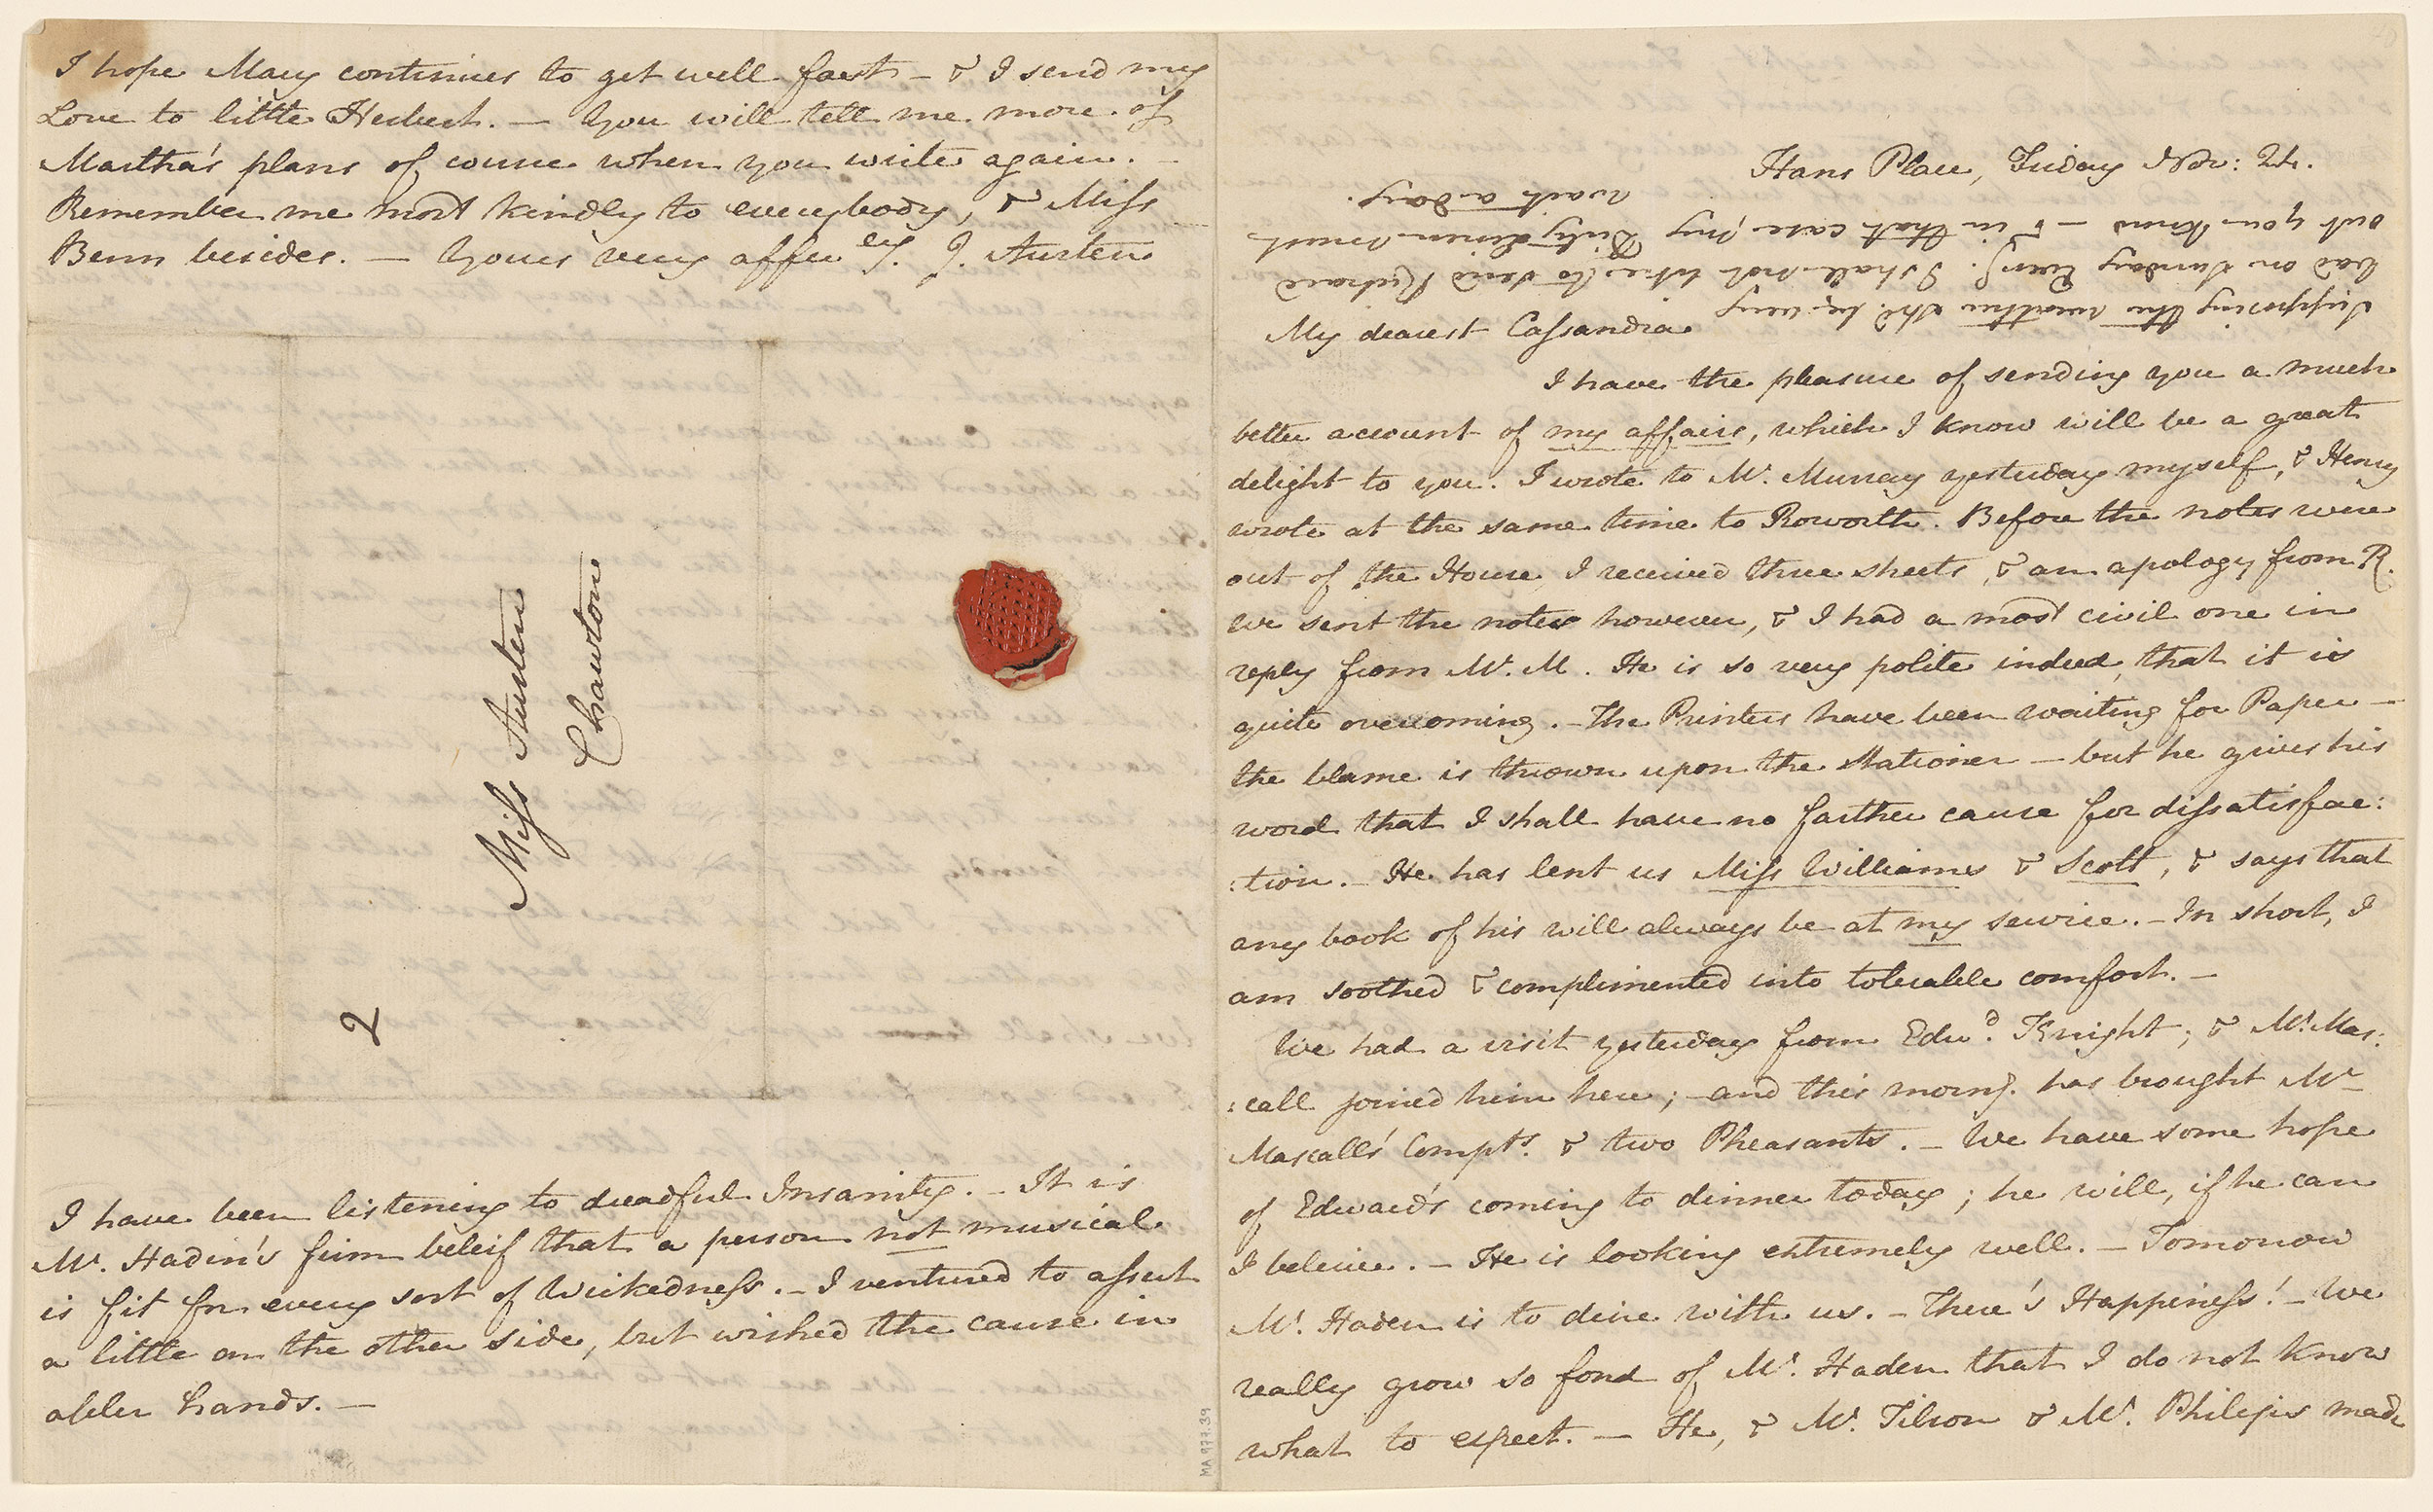 Hans Place, Friday Nov: 24.
My dearest Cassandra
I have the pleasure of sending you a much
better account of my affairs, which I know will be a great
delight to you. I wrote to Mr. Murray yesterday myself, & Henry
wrote at the same time to Roworth. Before the notes were
out of the House I received three sheets, & an apology from R.
We sent the notes however, & I had a most civil one in
reply from Mr. M. He is so very polite indeed, that it is
quite overcoming. – The Printers have been waiting for Paper –
the blame is thrown upon the Stationer – but he gives his
word that I shall have no farther cause for dissatisfac:
:tion. – He has lent us Miss Williams & Scott, & says that
any book of his will always be at my service. – In short, I
am soothed & complimented into tolerable comfort. –
We had a visit yesterday from Edwd. Knight; & Mr. Mas:
:call joined him here; – and this morng. has brought Mr.
Mascall's Compts. & two Pheasants. – We have some hope
of Edward's coming to dinner today; he will, if he can
I beleive. – He is looking extremely well. – Tomorrow
Mr. Haden is to dine with us. – There's Happiness! – We
really grow so fond of Mr. Haden that I do not know
what to expect. – He, & Mr. Tilson & Mr. Philips made
I hope Mary continues to get well fast – & I send my
Love to little Herbert. – You will tell me more of
Martha's plans of course when you write again. –
Remember me most kindly to everybody, & Miss
Benn besides. – Yours very affecly. J. Austen
Miss Austen
Chawton
2
I have been listening to dreadful Insanity. – It is
Mr. Haden's firm beleif that a person not musical
is fit for every sort of Wickedness. – I ventured to assert
a little on the other side, but wished the cause in
abler hands. –
Supposing the weather shd. be very
bad on Sunday Eveng. I shall not like to send Richard
out you know – & in that case, my Dirty Linen must
wait a day.
MA 977.39